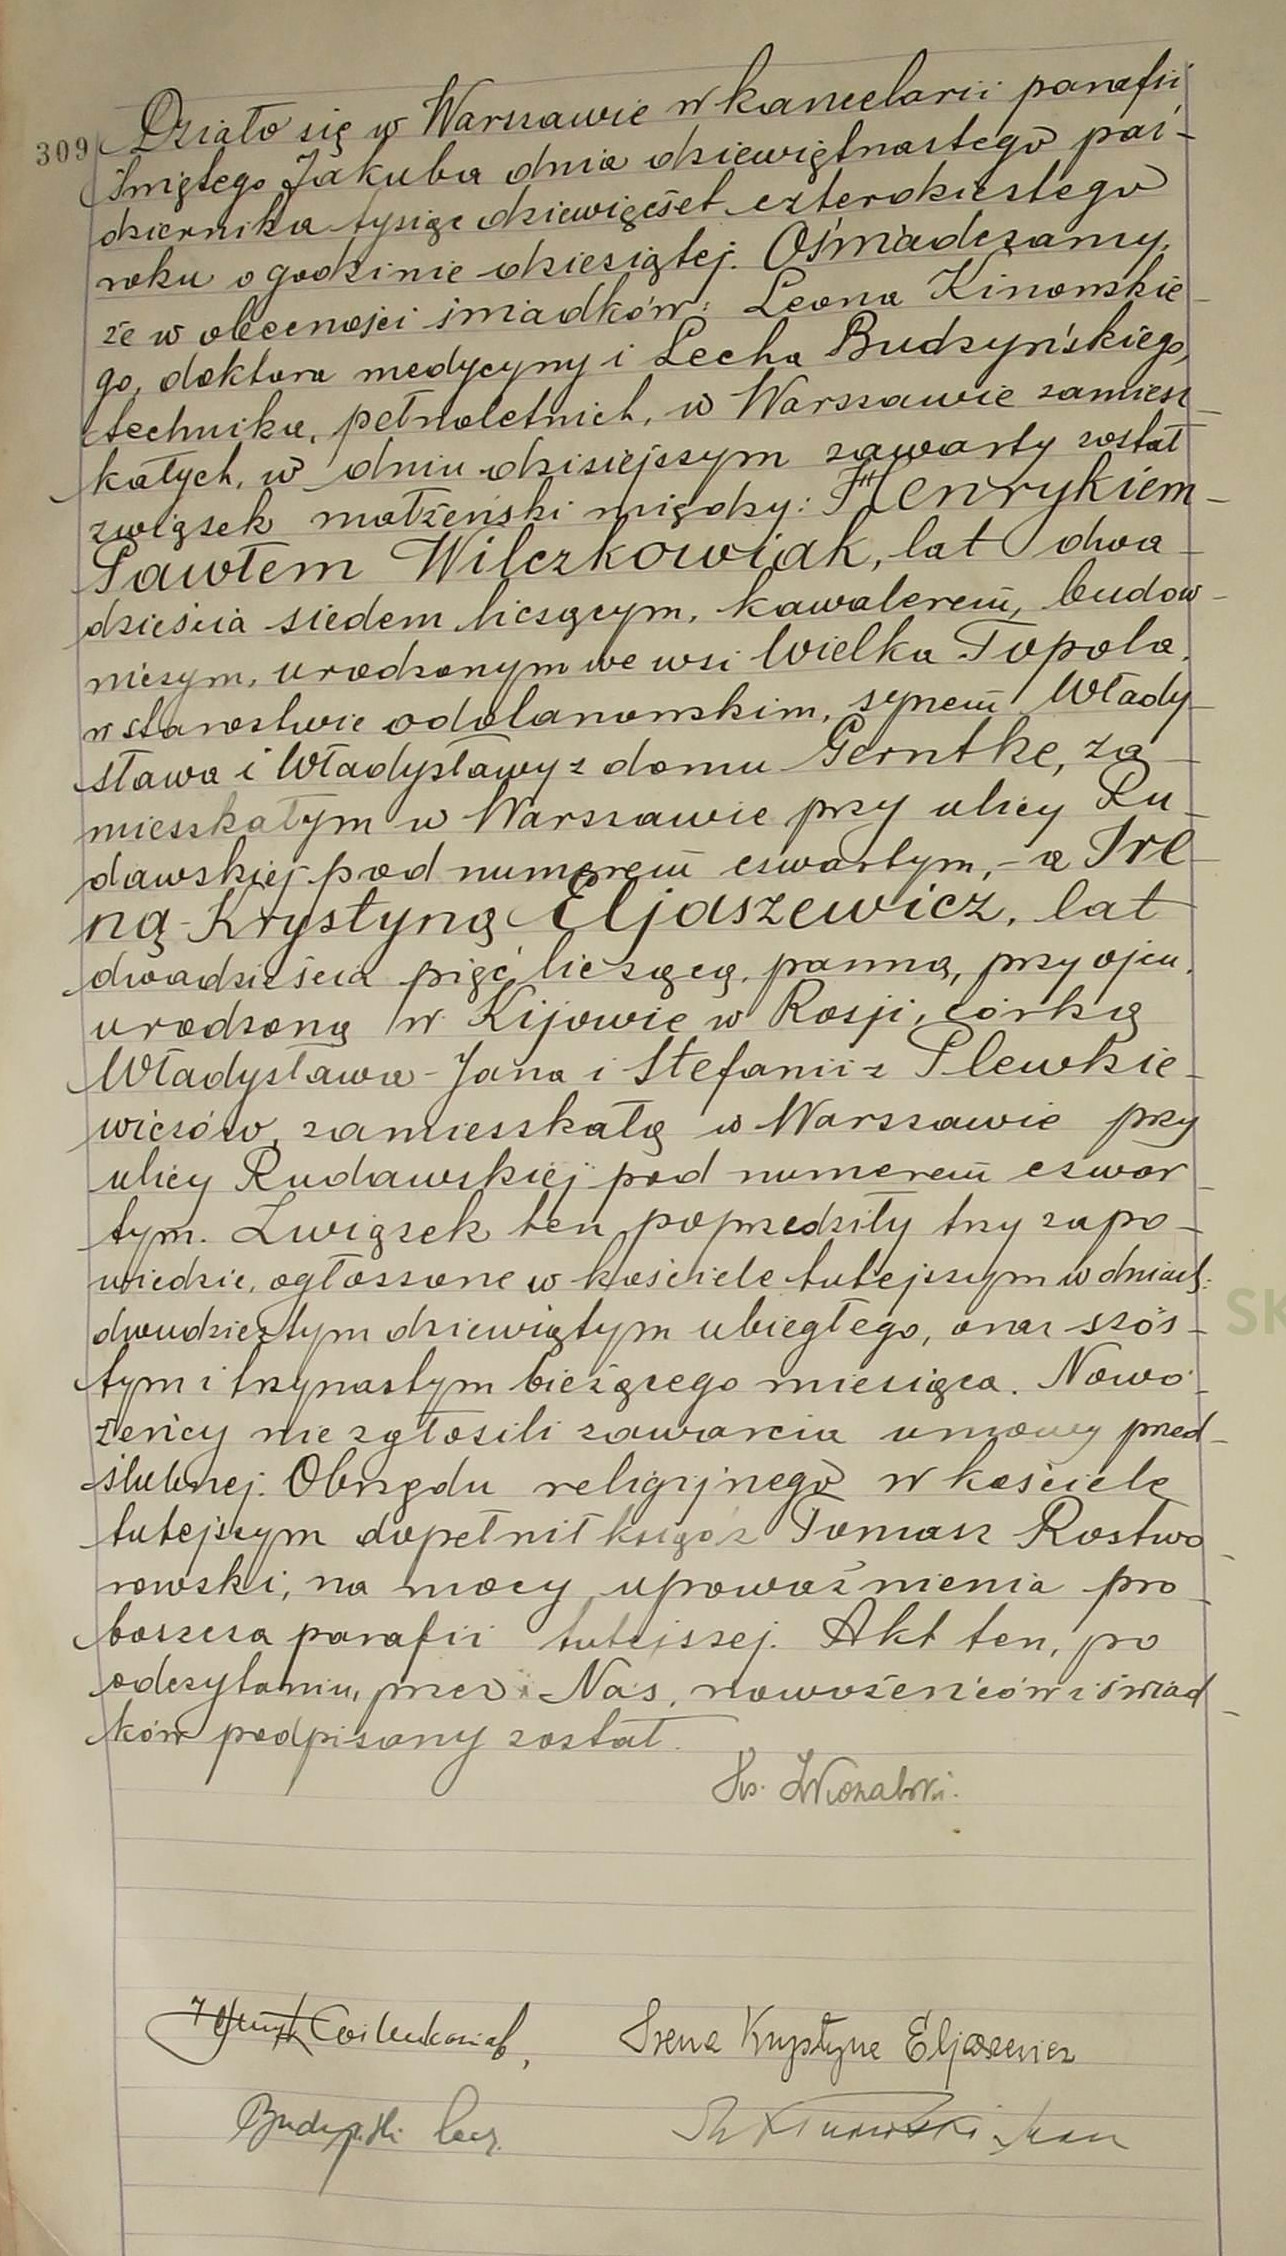 309 Działo się w Warszawie w kancelarii parafii
Świętego Jakuba dnia dziewiętnastego paź-
dziernika tysiąc dziewięćset czterdziestego
roku o godzinie dziesiątej. Oświadczamy,
że w obecności świadków: Leona Kinowskie-
go, doktora medycyny i Lecha Budzyńskiego,
technika, pełnoletnich, w Warszawie zamiesz-
kałych, w dniu dzisiejszym zawarty został
związek małżeński między: Henrykiem-
Pawłem Wilczkowiak, lat dwa-
dzieścia siedem liczącym, kawalerem, budow-
niczym, urodzonym we wsi Wielka Topola,
w starostwie odolanowskim, synem Włady-
sława i Władysławy z domu Gerntke, za-
mieszkałym w Warszawie przy ulicy Ru-
dawskiej pod numerem czwartym, - a Ire-
ną-Krystyną Eljaszewicz, lat
dwadzieścia pięć liczącą, panną, przy ojcu,
urodzoną w Kijowie w Rosji, córką
Władysława-Jana i Stefanii z Plewkie-
wiczów, zamieszkałą w Warszawie przy
ulicy Rudawskiej pod numerem czwar-
tym. Związek ten poprzedziły trzy zapo-
wiedzie, ogłoszone w kościele tutejszym w dniach:
dwudziestym dziewiątym ubiegłego, oraz szós-
tym i trzynastym bieżącego miesiąca. Nowo-
żeńcy nie zgłosili zawarcia umowy przed-
ślubnej. Obrzędu religijnego w kościele
tutejszym dopełnił ksiądz Tomasz Rostwo-
rowski, na mocy upoważnienia pro-
boszcza parafii tutejszej. Akt ten, po
odczytaniu, przez Nas, nowożeńców i świad-
ków podpisany został.
Ks.
Irena Krystyna Eljaszewicz
Budzyński Lech
Dr Kinowski Leon
SK